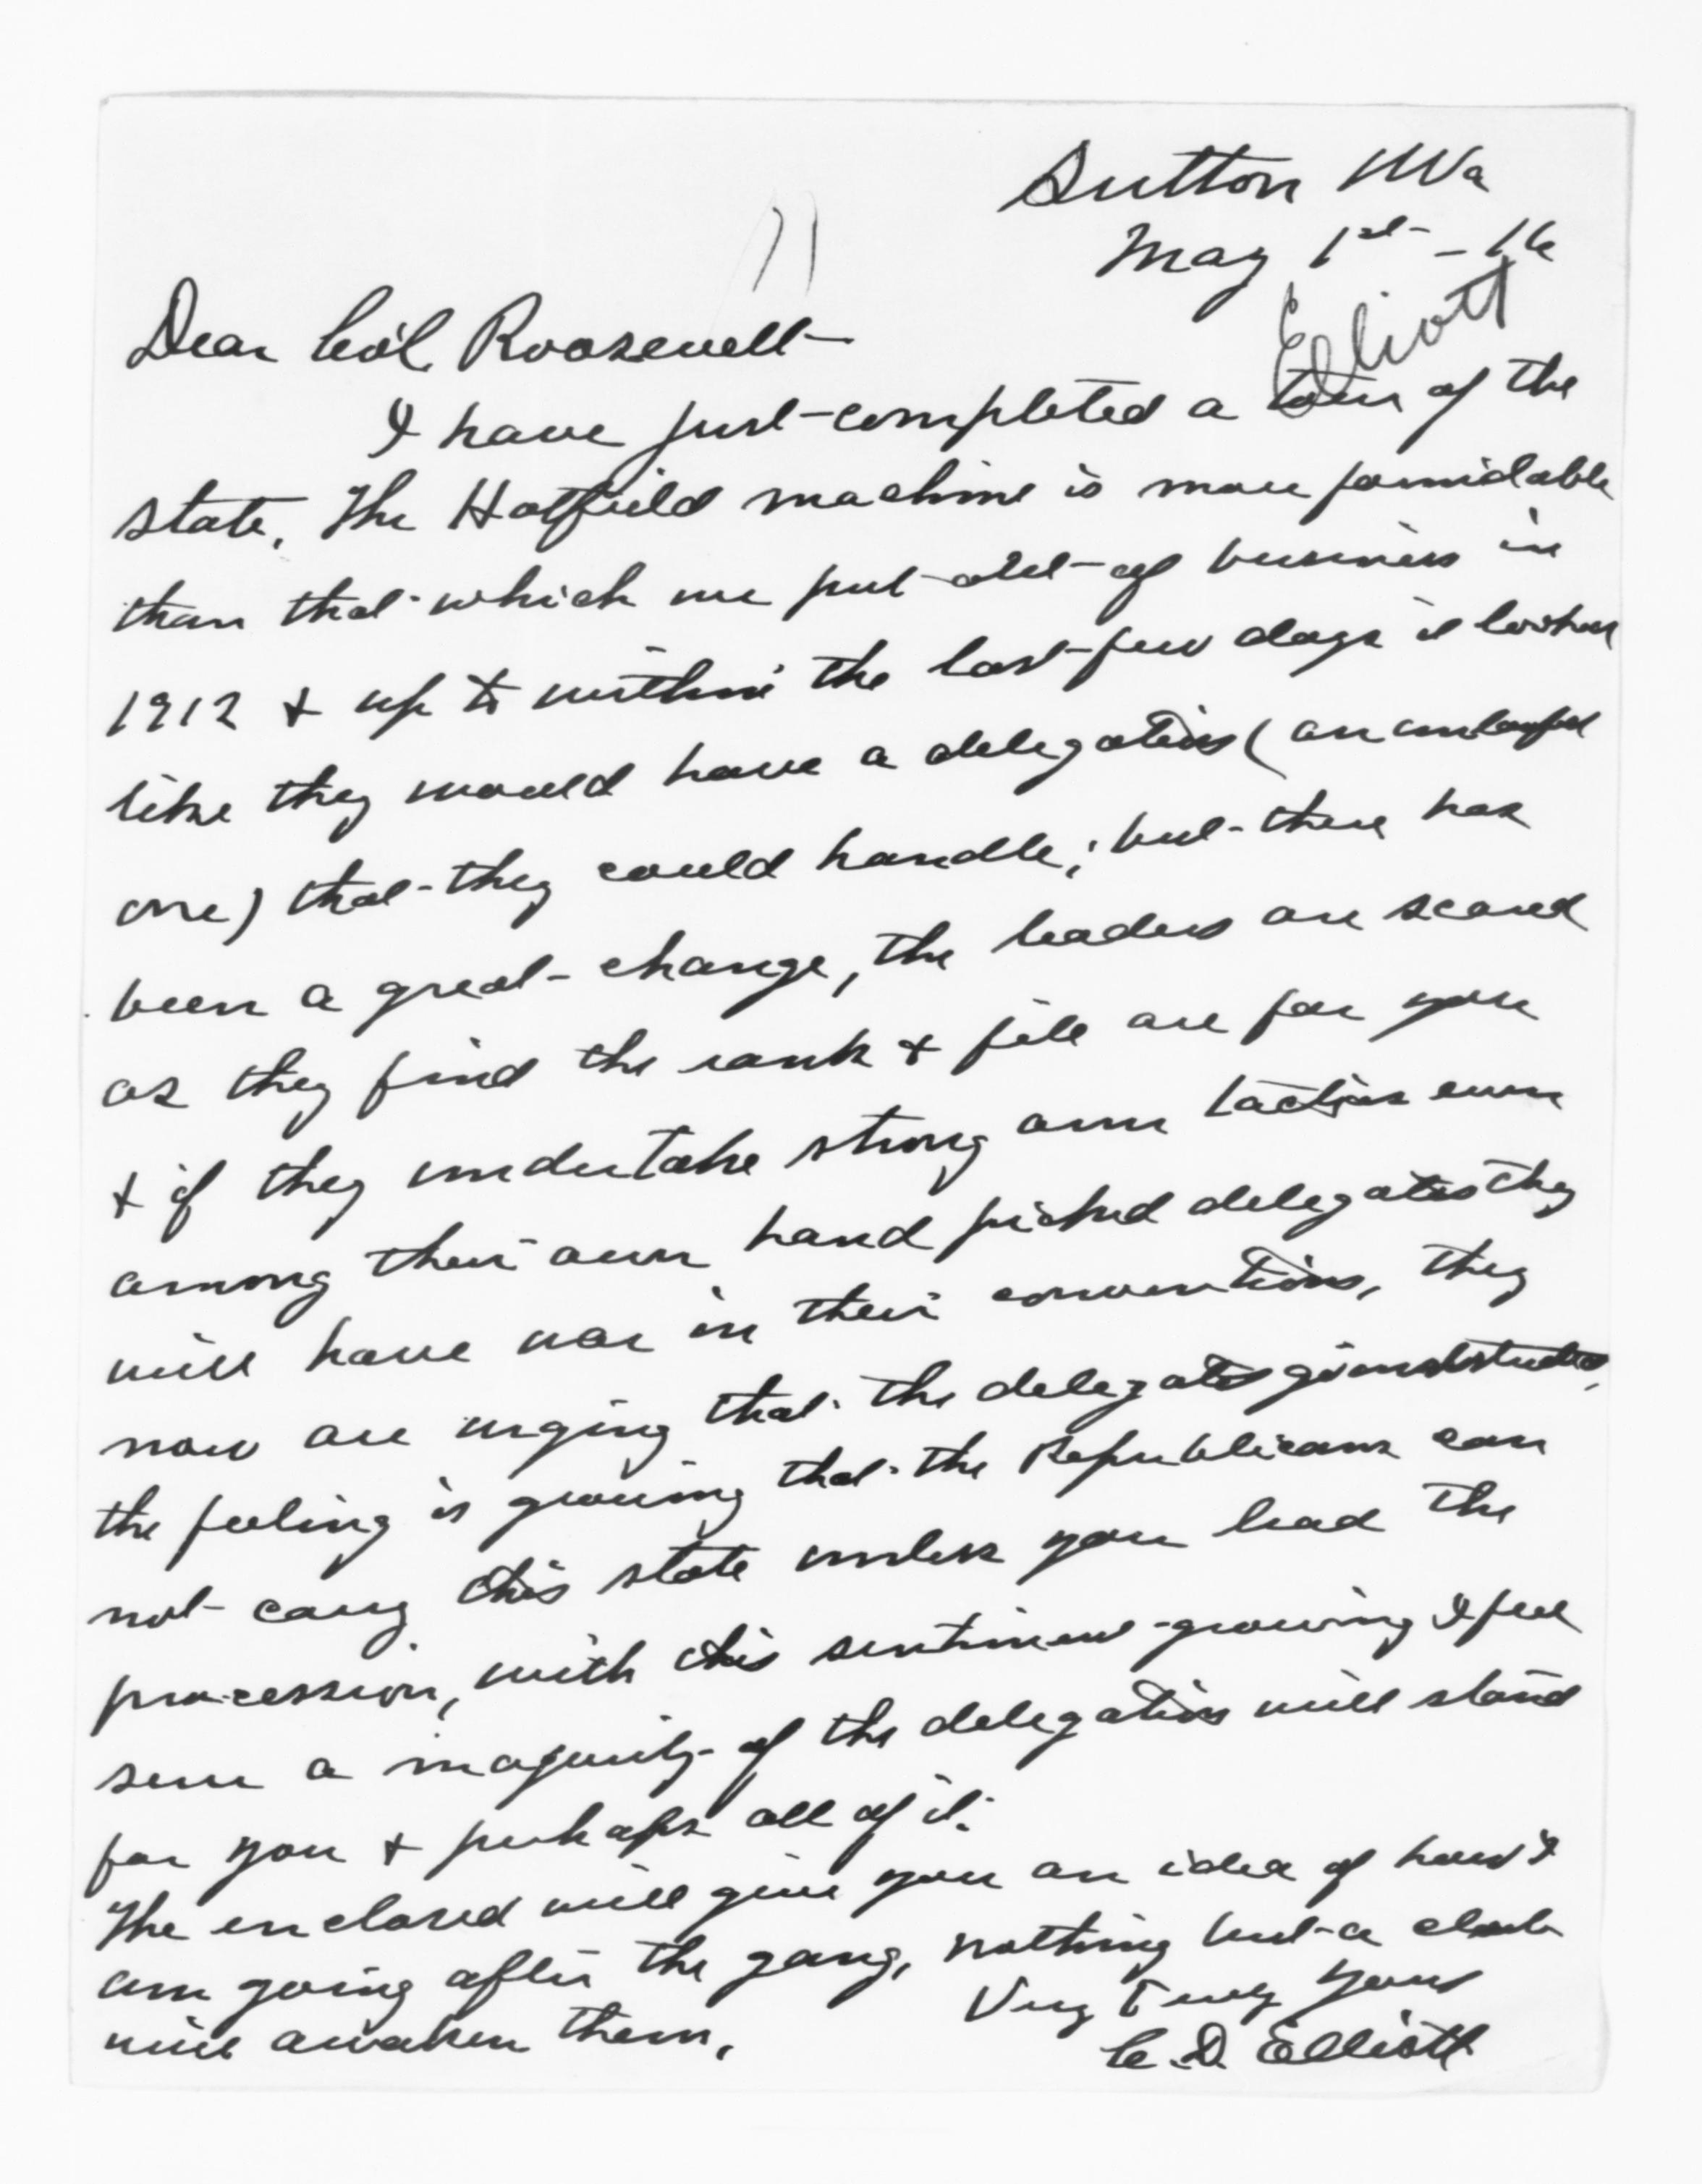 Sutton W Va
May 1st - 16
Elliott
Dear Col. Roosevelt
I have just completed a tour of the
state. The Hatfield machine is more formidable
than that which we put out of business in
1912 & up to within the last few days it looked
like they would have a delegation (an unlawful
one) that they could handle; but there has
been a great change, the leaders are scared
as they find the rank & file are for you
& if they undertake strong arm tactics even
among their own hand picked delegates they
will have war in their conventions, they
now are urging that the delegates go
the feeling is growing that the Republicans can
not carry this state unless you lead the
procession, with this sentiment growing I feel
sure a majority of the delegation will stand
for you & perhaps all of it.
The enclosed will give you an idea of how I
am going after the gang, nothing but a club
will awaken them.
Very Truly Yours
C. D. Elliott